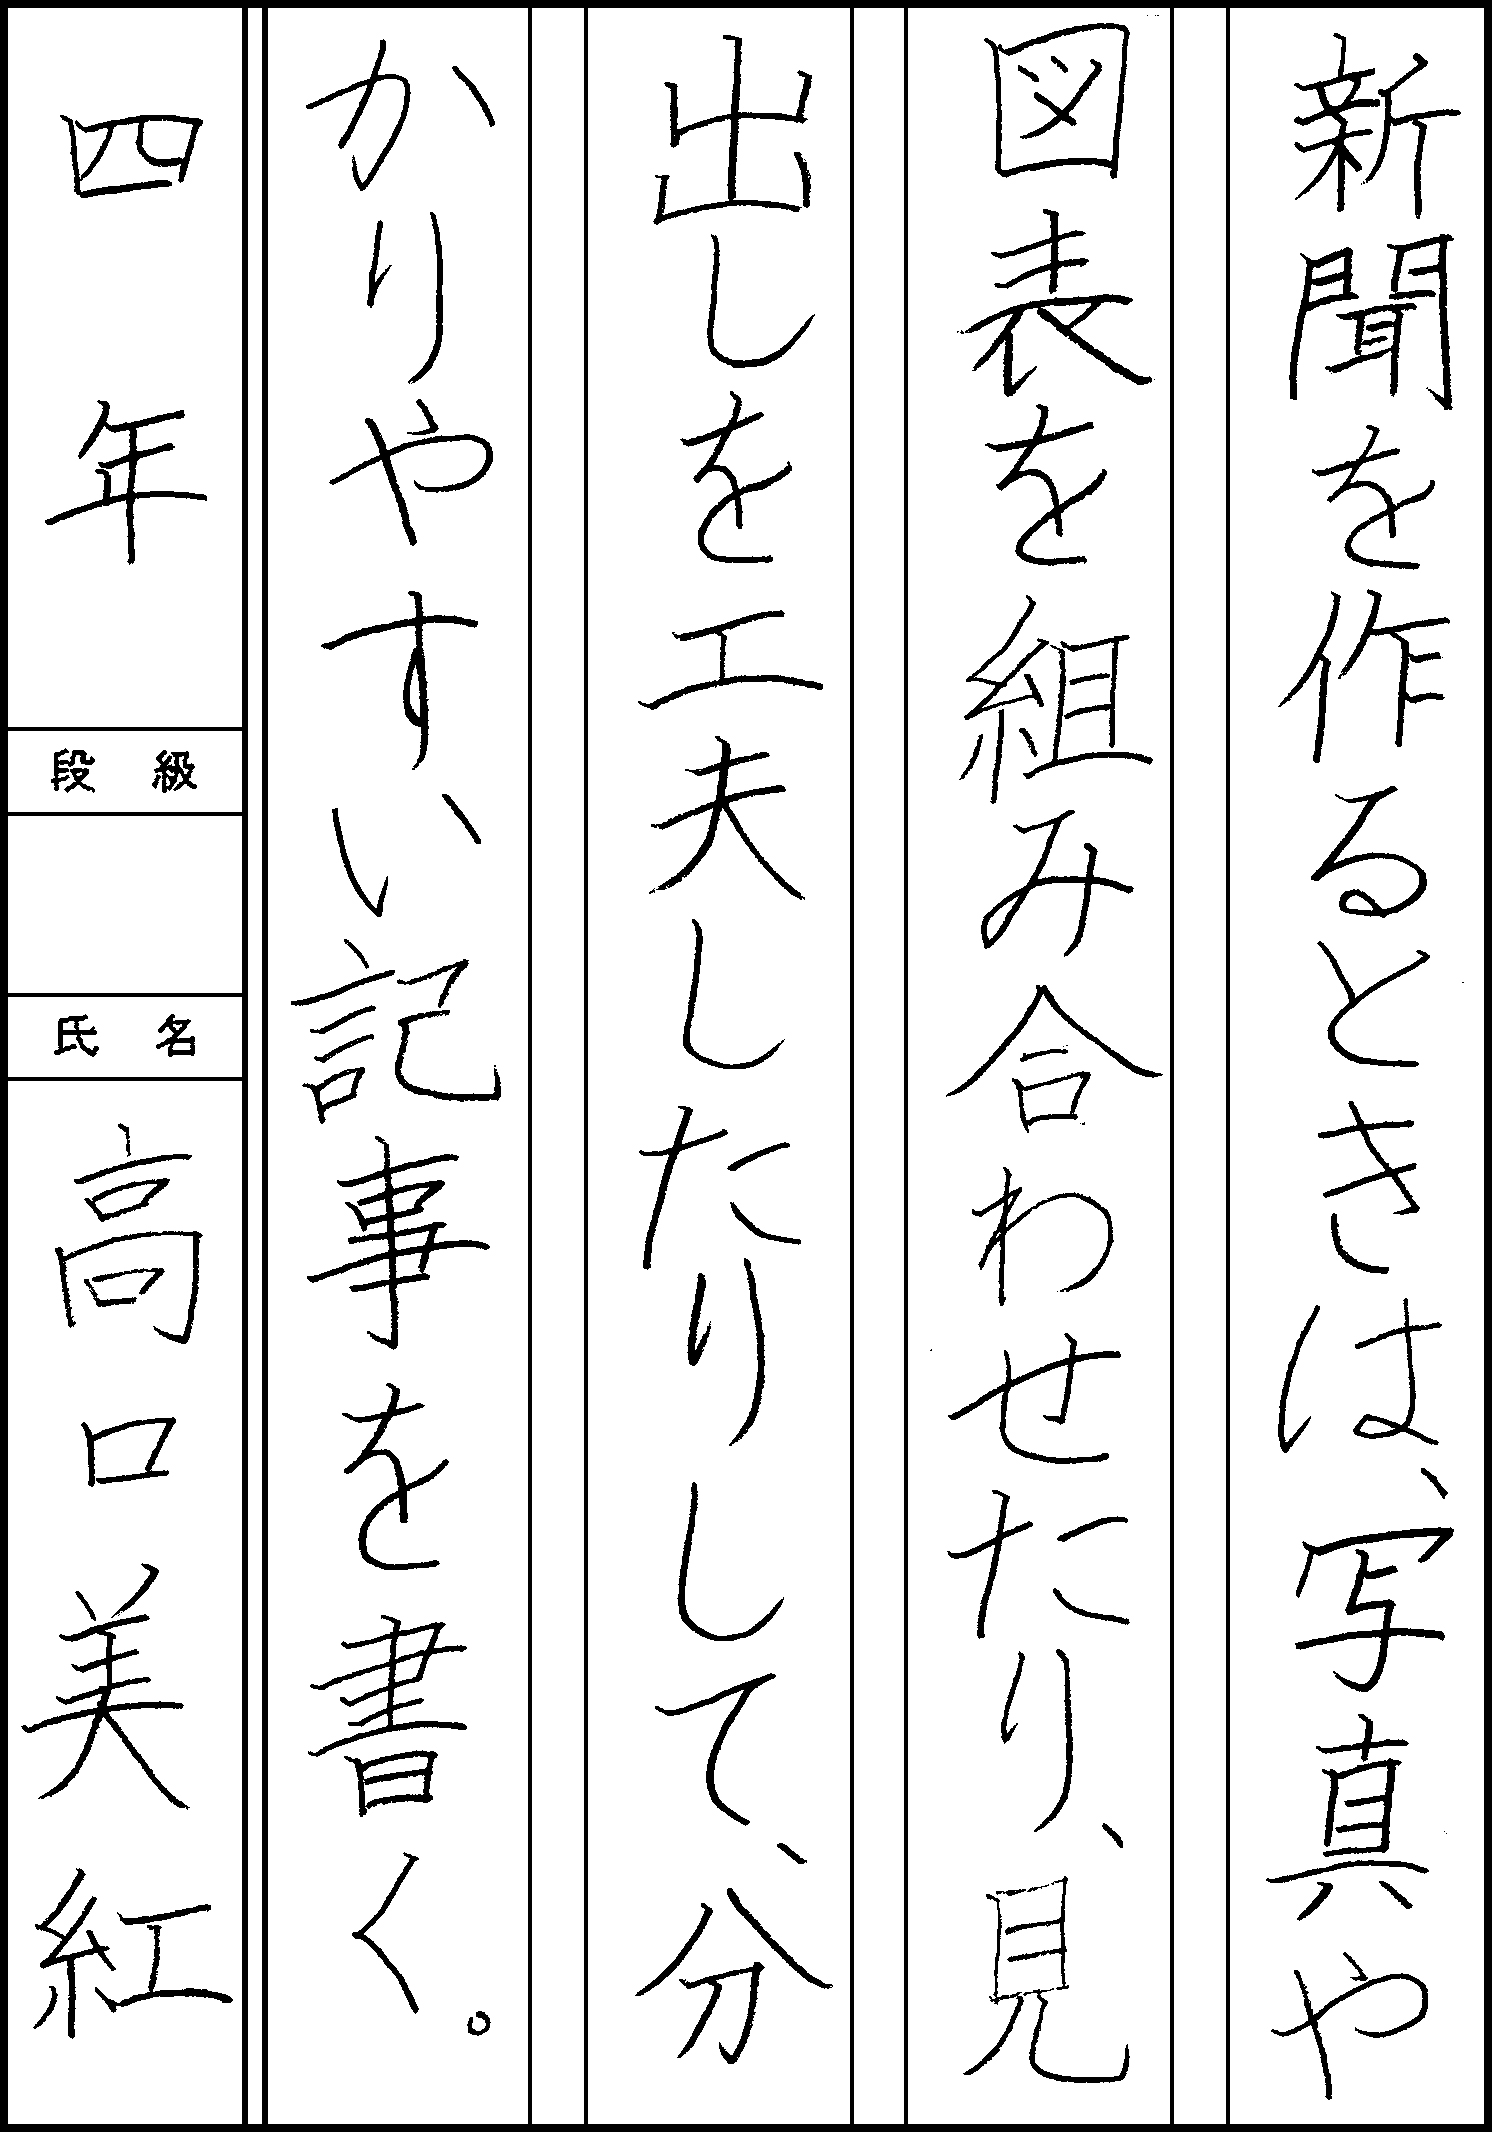 新聞を作るときは、写真や
図表を組み合わせたり、見
出しを工夫したりして、分
かりやすい記事を書く。
四年
段級
氏名
高口美紅